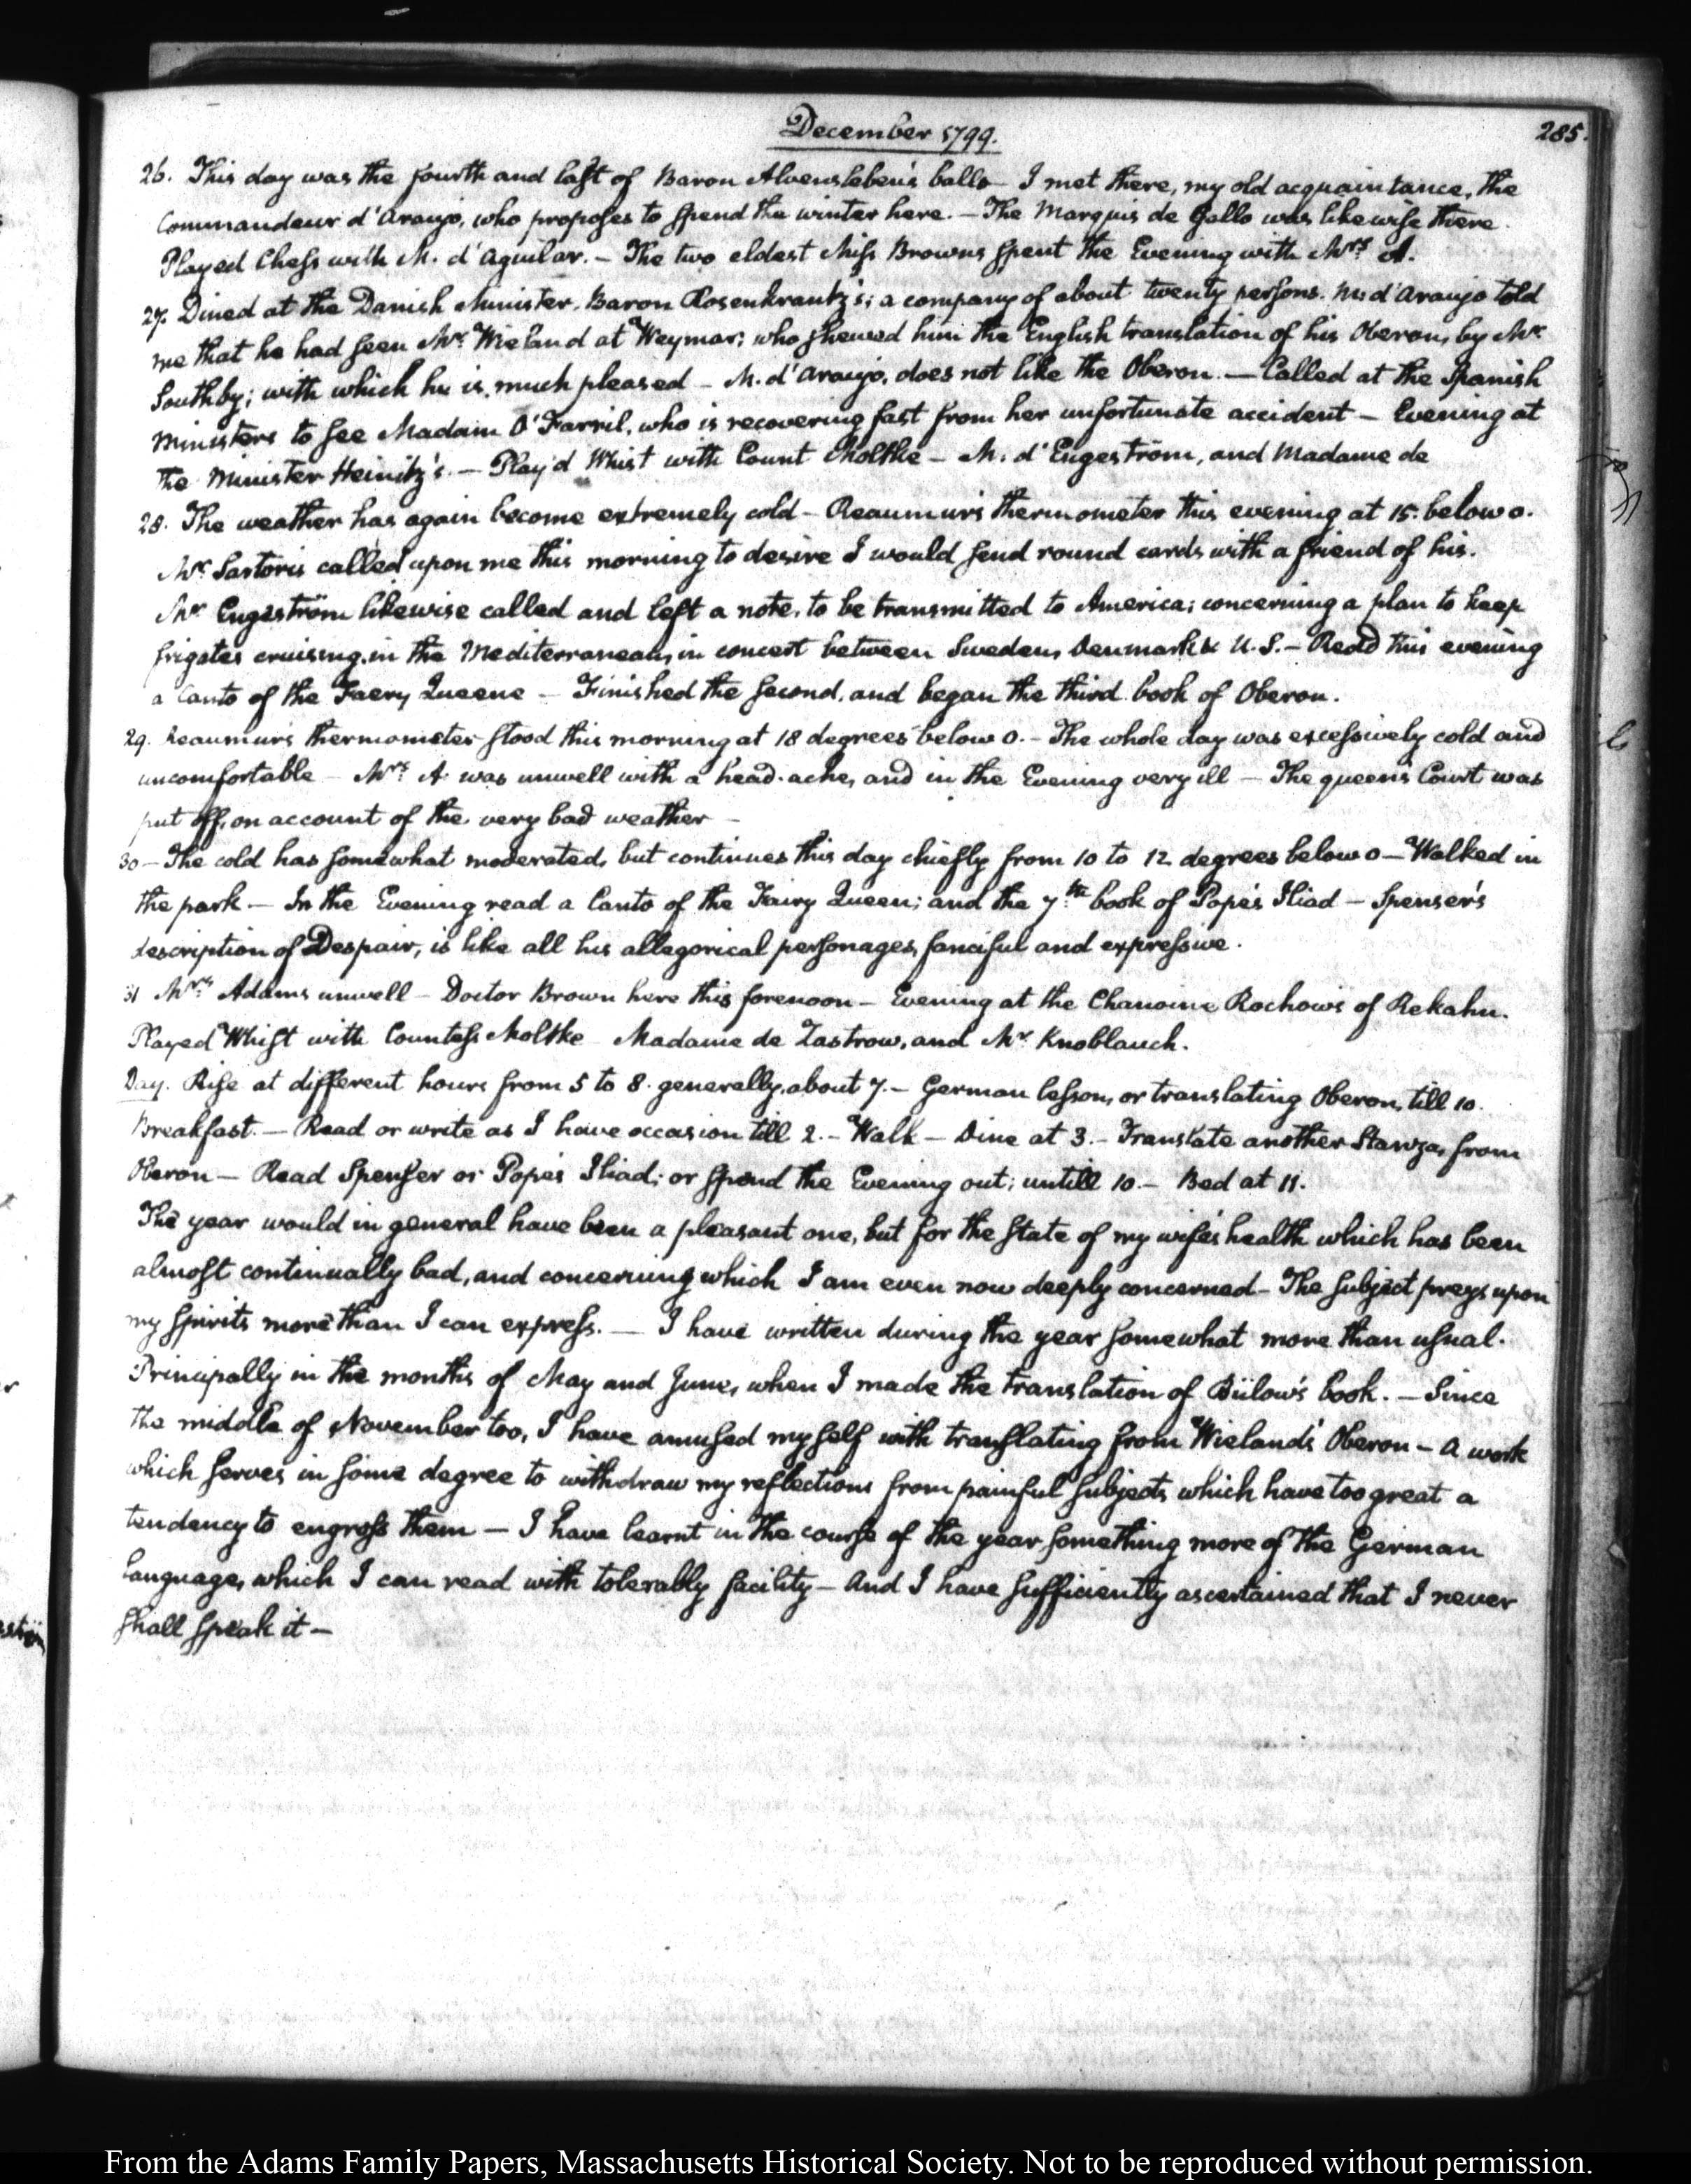 December 1799.
285.
26. This day was the fourth and last of Baron Alvensleben's balls — I met there, my old acquaintance, the
Commandeur d'Araujo, who proposes to spend the winter here. — The Marquis de Gallo was likewise there.
Played Chess with M. d'Aguilar. — The two eldest Miss Browns spent the Evening with Mrs. A.
27. Dined at the Danish Minister, Baron Rosenkrantz's; a company of about twenty persons. M: d'Araujo told
me that he had seen Mr. Wieland at Weymar; who shewed him the English translation of his Oberon, by Mr.
Southby; with which he is much pleased — M. d'Araujo, does not like the Oberon. — Called at the Spanish
Ministers to see Madam O'Farril, who is recovering fast from her unfortunate accident — Evening at
the Minister Heinitz's. — Play'd Whist with Count Moltke — M. d'Engeström, and Madame de
28. The weather has again become extremely cold — Reaumur's thermometer this evening at 15. below 0.
Mr. Sartoris called upon me this morning to desire I would send round cards with a friend of his.
Mr. Engeström likewise called and left a note, to be transmitted to America; concerning a plan to keep
frigates cruising, in the Mediterranean, in concert between Sweden, Denmark & U.S. — Read this evening
a Canto of the Faery Queene — Finished the second, and began the third book of Oberon.
29. Reaumur's thermometer stood this morning at 18 degrees below 0. — The whole day was excessively cold and
uncomfortable — Mrs. A was unwell with a head-ache, and in the Evening very ill — The queen's Court was
put off, on account of the very bad weather —
30 — The cold has somewhat moderated, but continues this day chiefly from 10 to 12 degrees below 0 — Walked in
the park — In the Evening read a Canto of the Fairy Queen; and the 7th. book of Pope's Iliad — Spenser's
description of Despair, is like all his allegorical personages, fanciful and expressive.
31 Mrs. Adams unwell — Doctor Brown here this forenoon — Evening at the Chanoine Rochow's of Rekahn.
Played Whist with Countess Moltke Madame de Zastrow, and Mr. Knoblauch.
Day. Rise at different hours from 5 to 8. generally, about 7. — German lesson, or translating Oberon, till 10.
Breakfast. — Read or write as I have occasion till 2. — Walk — Dine at 3. — Translate another Stanza, from
Oberon — Read Spenser or Pope's Iliad; or spend the Evening out; untill 10. — Bed at 11.
The year would in general have been a pleasant one, but for the state of my wife's health which has been
almost continually bad, and concerning which I am even now deeply concerned — The subject preys upon
my spirits more than I can express. — I have written during the year somewhat more than usual.
Principally in the months of May and June, when I made the translation of Bülow's book. — Since
the middle of November too, I have amused myself with translating from Wieland's Oberon — a work
which serves in some degree to withdraw my reflections from painful subjects which have too great a
tendency to engross them — I have learnt in the course of the year something more of the German
language, which I can read with tolerably facility — And I have sufficiently ascertained that I never
shall speak it —
From the Adams Family Papers, Massachusetts Historical Society. Not to be reproduced without permission.